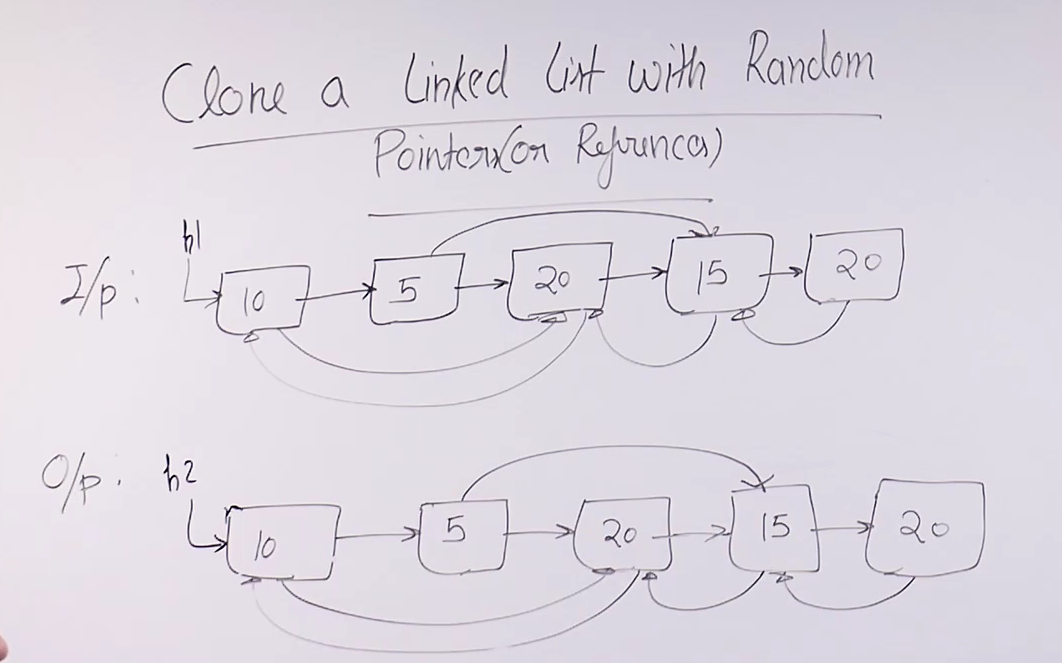 Clone a Linked List with Random
Pointers(or Refrences)
h1
I/p: 10 5 20 15 20
O/p: h2
10 5 20 15 20